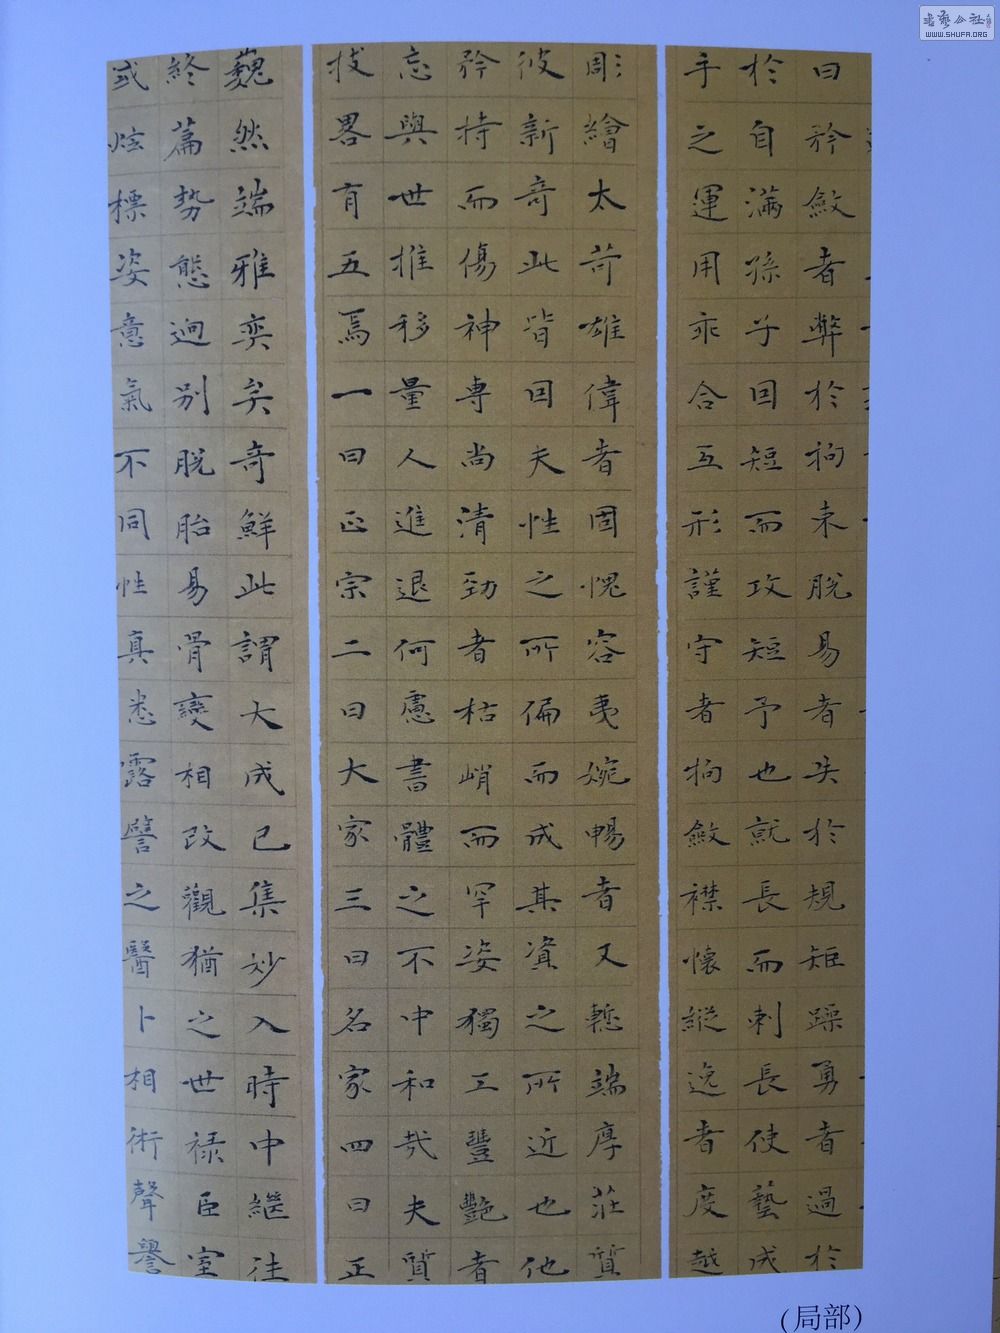 書藝公社
WWW.SHUFA.ORG
曰矜斂者弊於拘束脫易者失於規矩躁勇者過於
於自滿孫子因短而攻短予也就長而刺長使藝成
手之運用乖合互形謹守者拘斂襟懷縱逸者度越
彫繪太苛雄偉者固愧容夷婉暢者又慙端厚莊質
彼新奇此皆因夫性之所偏而成其資之所近也他
矜持而傷神專尚清勁者枯峭而罕姿獨工豐艷者
忘與世推移量人進退何慮書體之不中和哉夫質
技畧有五焉一曰正宗二曰大家三曰名家四曰正
巍然端雅奕矣奇鮮此謂大成已集妙入時中繼往
終篇勢態迥別脫胎易骨變相改觀猶之世祿臣室
或炫標姿意氣不同性真悉露譬之醫卜相術聲譽
(局部)